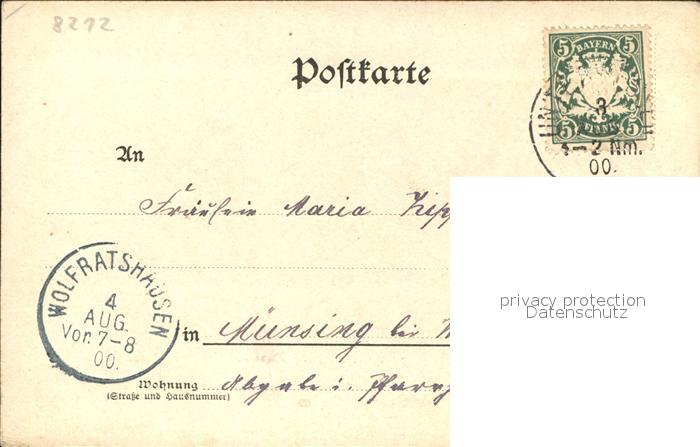 8212
Postkarte
5 BAYERN 5
5 PFENNIG 5
3
4-2 Nm.
00.
An
Fräulein Maria
WOLFRATSHAUSEN
4
AUG.
Vor. 7-8
00.
in Münsing bei
Wohnung Abgabe i.
(Straße und Hausnummer)
privacy protection
Datenschutz